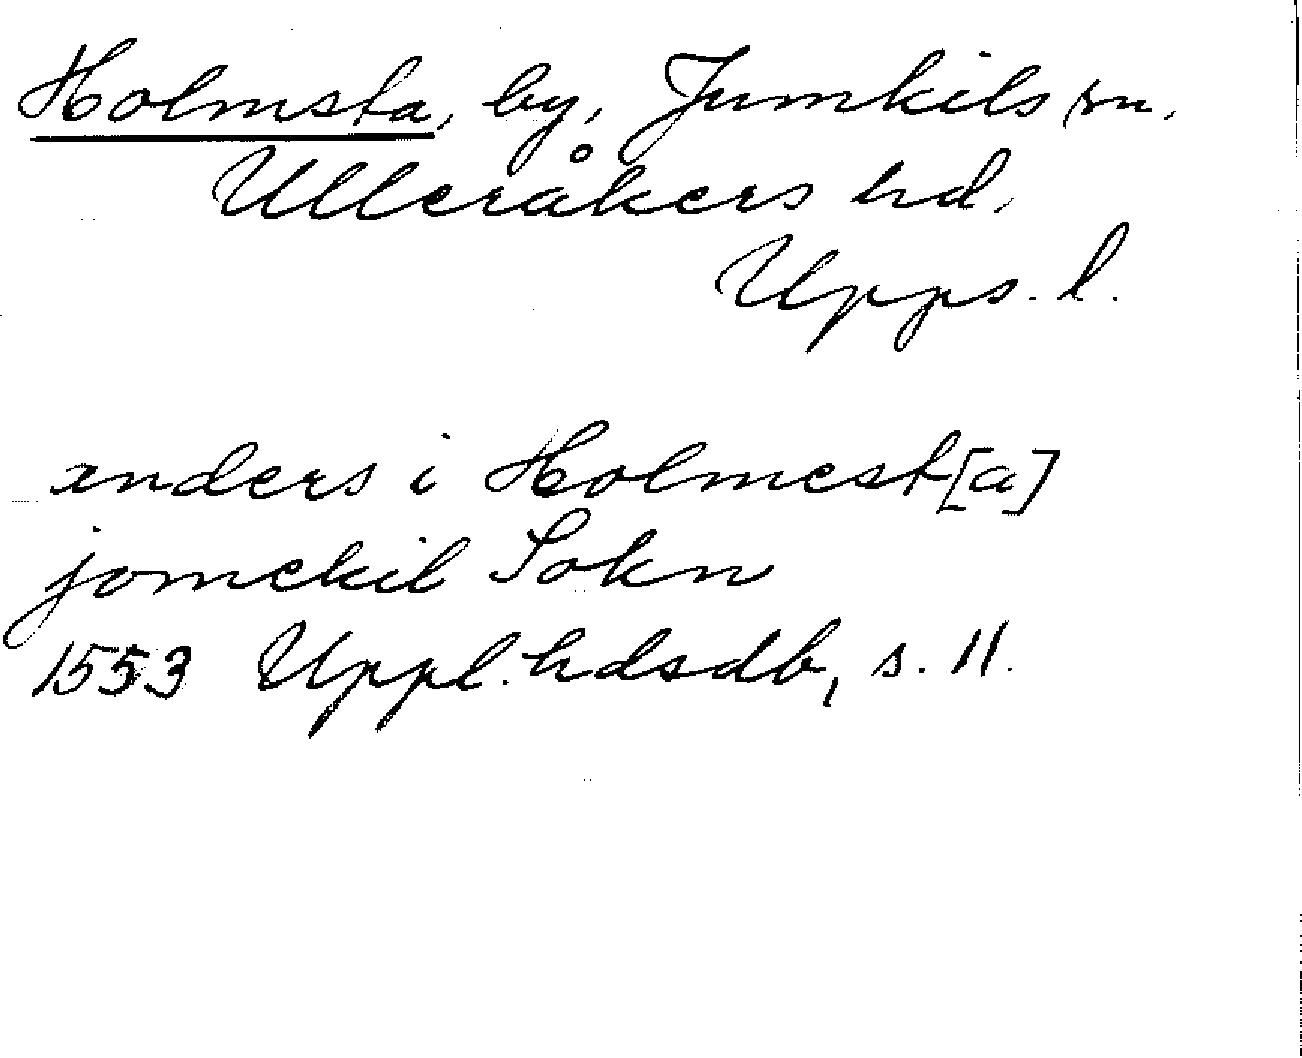 Holmsta, by, Jumkils sn.
Ulleråkers hd.
Upps. l.
anders i Holmest[a]
jomekil Sokn
1553 Uppl. hdsdb, s. 11.